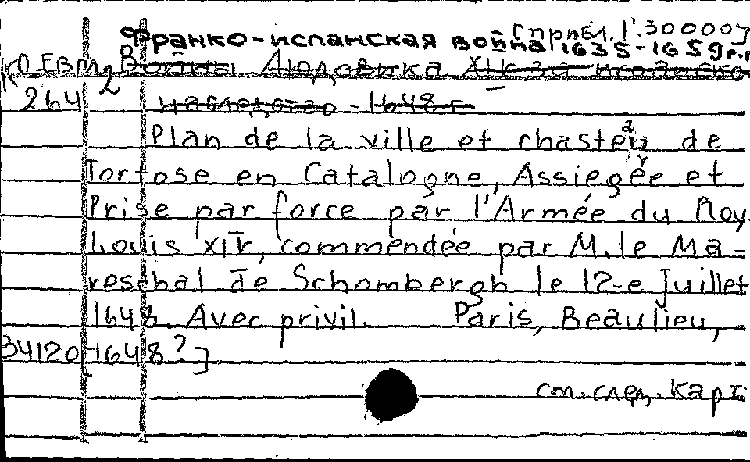 [Прибл. 1:30000]
Франко-испанская война 1635-1659 г.г.
К 0 Евт 2 Войны Людовика XIV за испанско
264 наследство - 1648 г.
Plan de la ville et chasteau de
Tortose en Catalogne, Assiegée et
Prise par force par l'Armée du Roy
Louis XIV, commendée par M. le Ma=
reschal de Schombergh le 12-e Juillet
1648. Avec privil. Paris, Beaulieu,
34120 [1648?]
см. след. карт